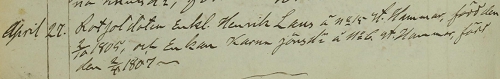 April 27. Rotsoldaten Enkl. Henrik Laus å № 15 st. Hammar, född den
1805, och Enkan Karna Jönsdr å № 6 st. Hammar, född
den 1807